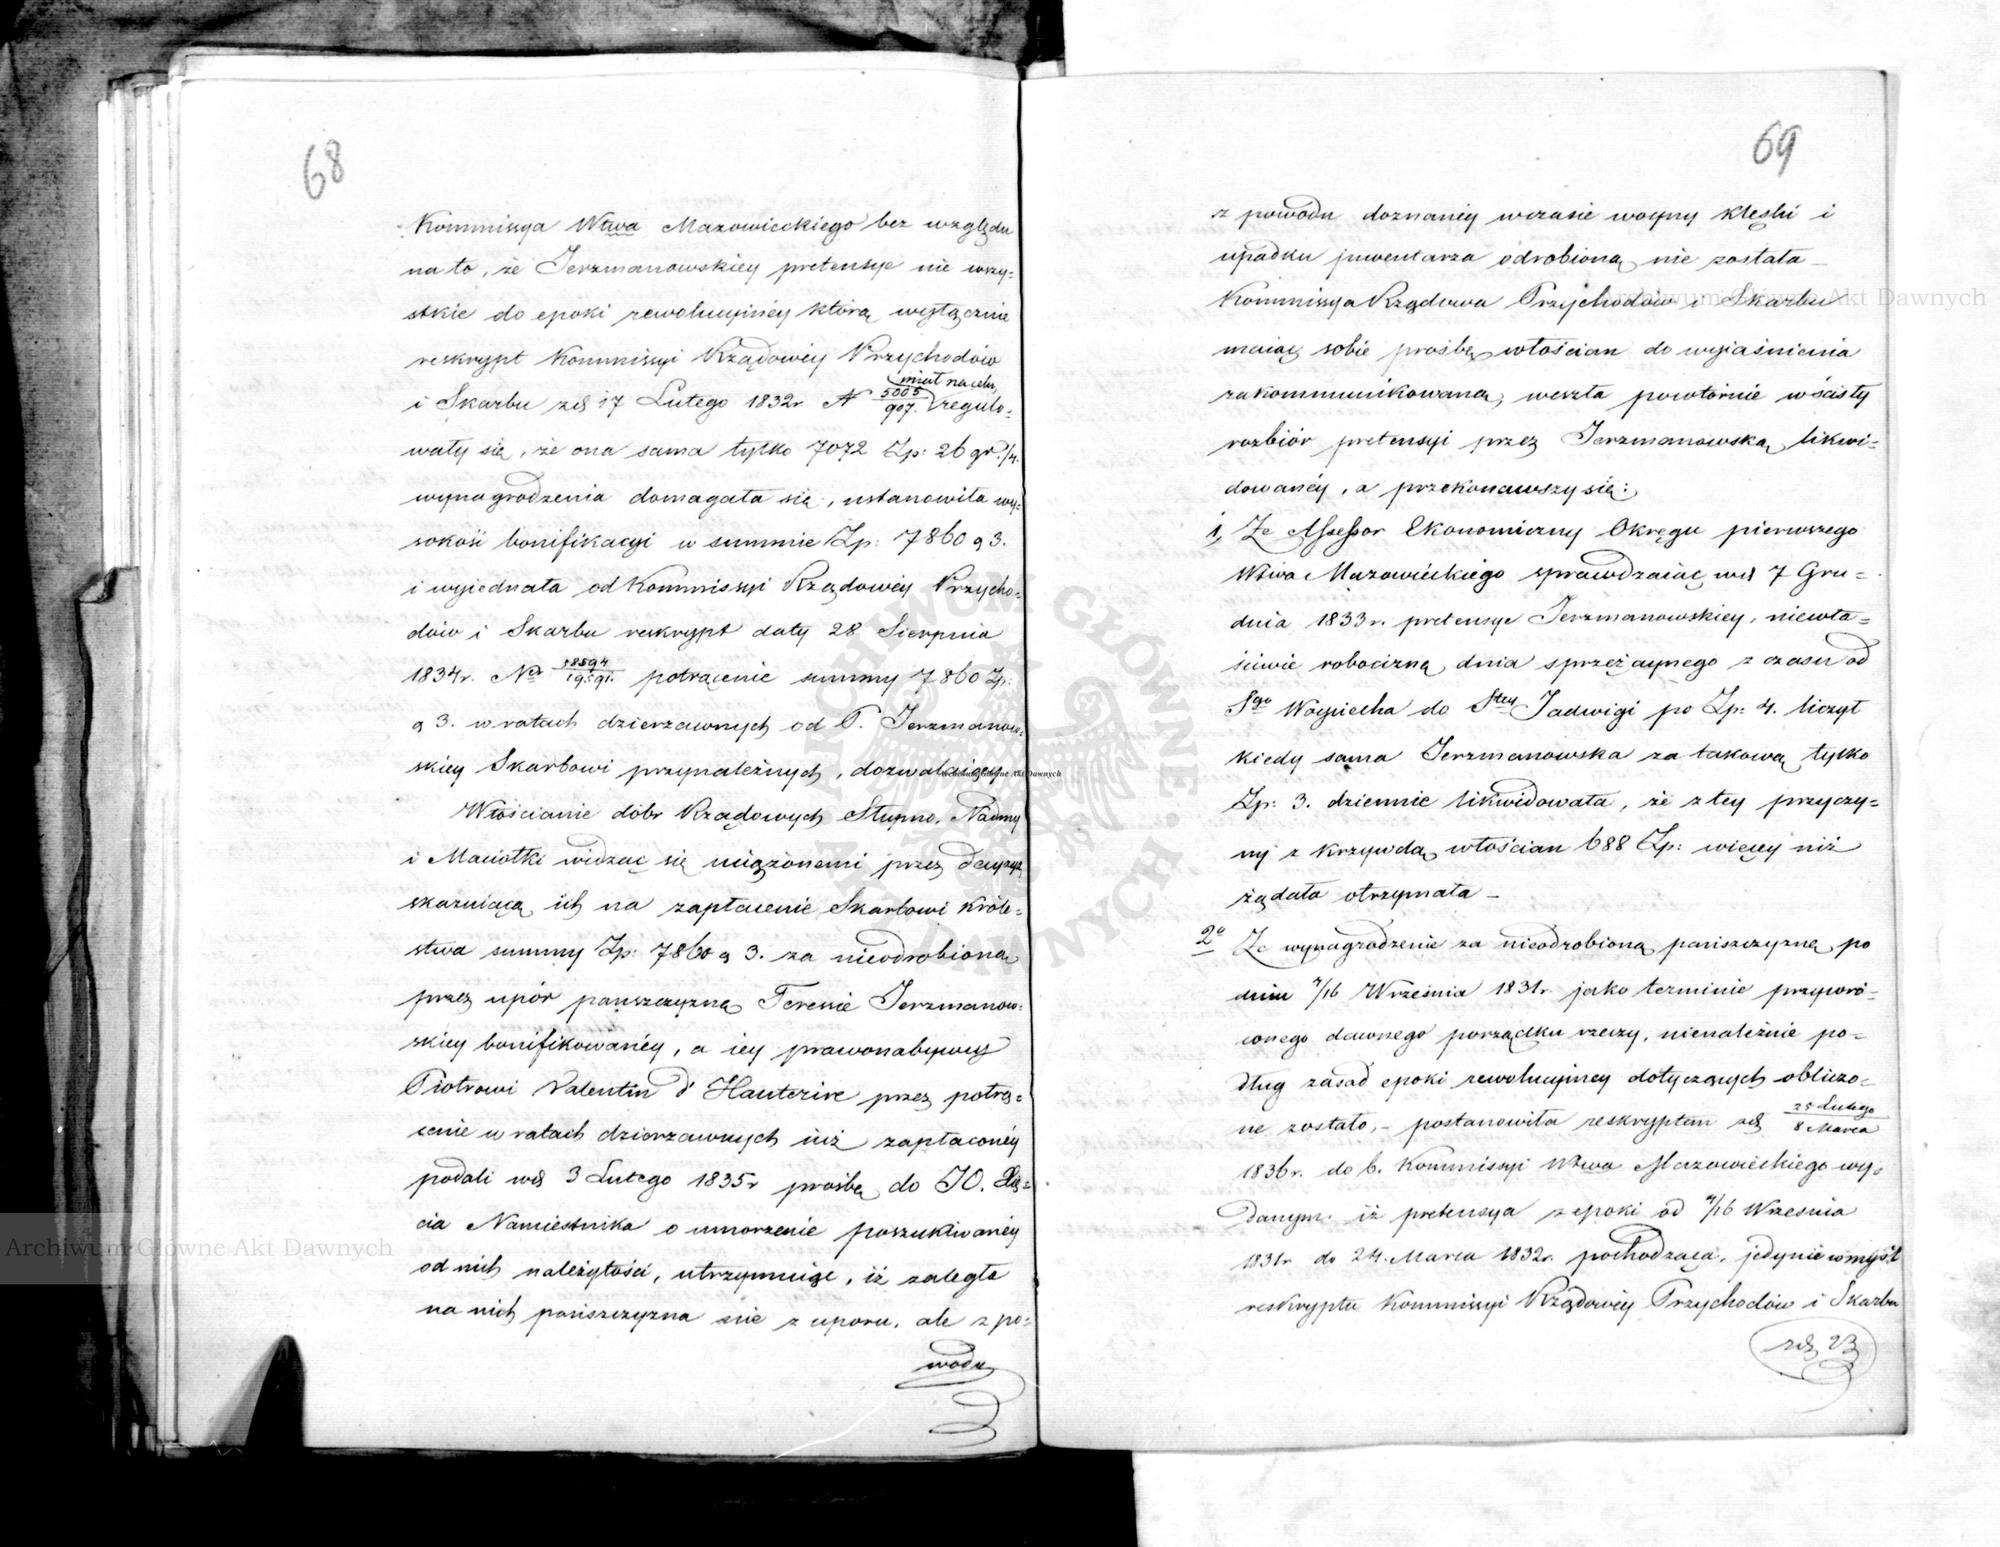 68
Kommissya Wtwa Mazowieckiego bez względu
na to, że Jerzmanowskiey pretensye nie wszy=
stkie do epoki rewolucyinéy którą wyłącznie
reskrypt Kommissyi Rządowéy Przychodów
miał na celu,
i Skarbu zd 17 Lutego 1832r N 5005/907. regulo=
wały się, że ona sama tylko 7072 Zp: 26 gr.
wynagrodzenia domagała się, ustanowiła wy=
sokość bonifikacyi w summie Zp: 7860 g 3.
i wyiednała od Kommissyi Rządowéy Przycho=
dów i Skarbu reskrypt daty 28 Sierpnia
1834r. Nr 18594/19591. potrącenie summy 7860 Zp:
g 3. w ratach dzierzawnych od P. Jerzmanow=
skiey Skarbowi przynależnych, dozwalaiący
Włościanie dóbr Rządowych Słupno, Nadmy
i Maciołki widząc się uciążonemi przez decyzyą
skazuiącą ich na zapłacenie Skarbowi Króle=
stwa summy Zp: 7860 g 3. za nieodrobioną
przez upór pańszczyznę Teressie Jerzmanow=
skiey bonifikowanéy, a iey prawonabywcy
Piotrowi Valentin d'Hauterive przez potrą=
cenie w ratach dzierzawnych iuż zapłaconéy
podali wd 3 Lutego 1835r prośbę do JO. Xię=
cia Namiestnika o umorzenie poszukiwanéy
od nich należytości, utrzymuiąc, iż zaległa
na nich pańszczyzna nie z uporu, ale z po=
wodu
69
z powodu doznanéy wczasie woyny klęski i
upadku juwentarza odrobioną nie została _
Kommissya Rządowa Przychodów i Skarbu
maiąc sobie prośbę włościan do wyiaśnienia
zakommunikowaną, weszła powtórnie w ścisły
rozbiór pretensyi przez Jerzmanowską likwi=
dowanéy, a przekonawszy się:
1, Że Assessor Ekonomiczny Okręgu pierwszego
Wtwa Mazowieckiego sprawdzaiąc wd 7 Gru=
dnia 1833r. pretensye Jerzmanowskiey, niewła=
ściwie robociznę dnia sprzężaynego z czasu od
Sgo Woyciecha do Stey Jadwigi po Zp: 4. liczył
kiedy sama Jerzmanowska za takową tylko
Zp: 3. dziennie likwidowała, że z tey przyczy=
ny z krzywdą włościan 688 Zp: więcey niż
żądała otrzymała _
2o Że wynagrodzenie za nieodrobioną pańszczyznę po
dniu 4/16 Września 1831r. jako terminie przywró=
conego dawnego porządku rzeczy, nienależnie po=
dług zasad epoki rewolucyiney dotyczących obliczo=
ne zostało, _ postanowiła reskryptem zd 25 Lutego/8 Marca
1836r. do b. Kommissyi Wtwa Mazowieckiego wy=
danym. iż pretensya z epoki od 4/16 Września
1831r do 24. Marca 1832r. pochodząca, jedynie wmyśl
reskryptu Kommissyi Rządowéy Przychodów i Skarbu
zd 23
Archiwum Główne Akt Dawnych
Archiwum Główne Akt Dawnych
Archiwum Główne Akt Dawnych
ARCHIWUM GŁÓWNE AKT DAWNYCH